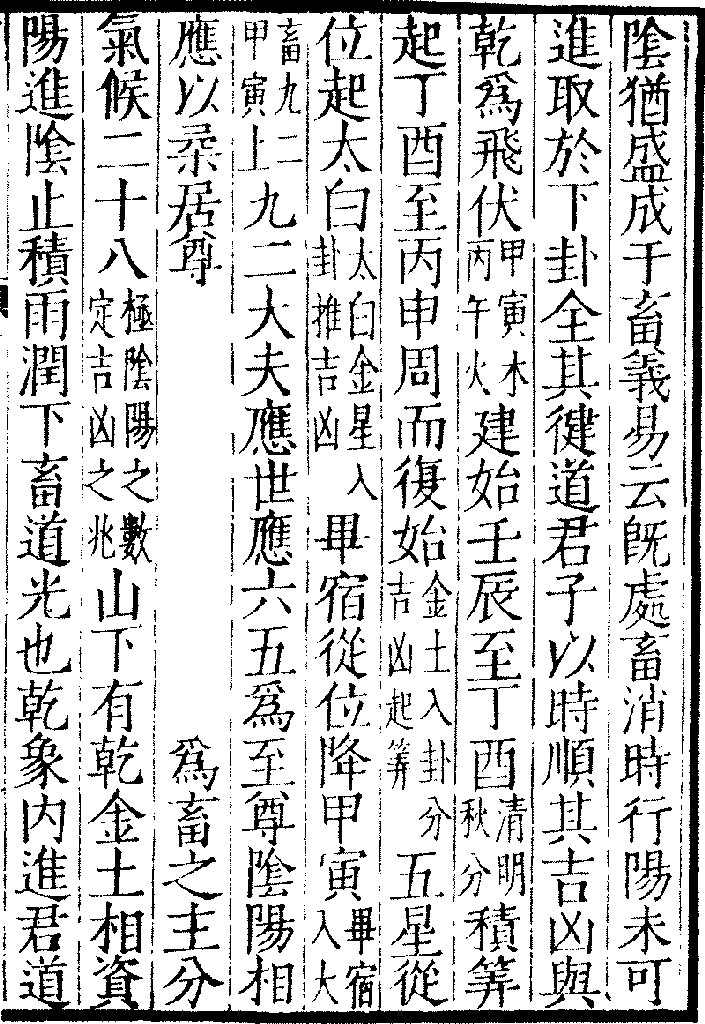 陰猶盛成于畜義易云旣處畜消時行陽未可
進取於下卦全其健道君子以時順其吉凶與
乾爲飛伏甲寅木丙午火建始壬辰至丁酉清明秋分積筭
起丁酉至丙申周而復始金土入卦分吉凶起筭五星從
位起太白太白金星入卦推吉凶畢宿從位降甲寅畢宿入大
畜九二甲寅上九二大夫應世應六五爲至尊陰陽相
應以柔居尊爲畜之主分
氣候二十八極陰陽之數定吉凶之兆山下有乾金土相資
陽進陰止積雨潤下畜道光也乾象內進君道